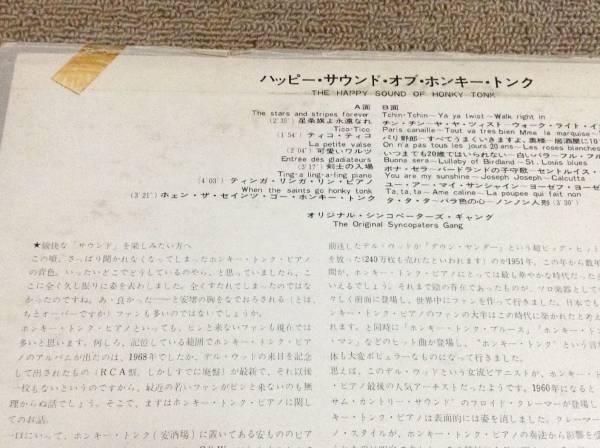 ハッピー・サウンド・オブ・ホンキー・トンク
THE HAPPY SOUND OF HONKY TONK
A面
The stars and stripes forever
(2´35˝) 星条旗よ永遠なれ
Tico-Tico
(1´54˝) ティコ・ティコ
La petite valse
(2´04˝) 可愛いワルツ
Entrée des gladiateurs
(3´17˝) 剣士の入場
Ting-a ling-a-ling piano
(4´03˝) ティンガ・リンガ・リン・ピアノ
When the saints go honky tonk
(3´21˝) ホェン・ザ・セインツ・ゴー・ホンキー・トンク
B面
Tchin-Tchin—Ya ya twist—Walk right in
チン・チン—ヤ・ヤ・ツィスト—ウォーク・ライト・イ
Paris canaille—Tout va tres bien Mme la marquise—
パリ野郎—すべてうまくいきますよ、奥様—居酒屋に10
On n'a pas tous les jours 20 ans—Les roses blanches
いつまでも20歳ではいられない—白いバラ—フル・フル
Buona sera—Lullaby of Birdland—St. Louis blues
ボナ・セラ—バードランドの子守歌—セントルイス・
You are my sunshine—Joseph Joseph—Calcutta
ユー・アー・マイ・サンシャイン—ヨーゼフ・ヨーゼ
Ta, ta, ta—Ame caline—La poupee qui fait non
タ・タ・タ—バラ色の心—ノンノン人形 (3´30˝)
オリジナル・シンコペーターズ・ギャング
The Original Syncopaters Gang
★鋭後な「サウンド」を楽しみたい方へ
この頃、さっぱり聞かれなくなってしまったホンキー・トンク・ピアノ
の音色。いったいどこでどうしているのやら、と思っていましたら、こ
こに全く久し振りに姿を表わしました。全くすたれてしまったのではな
かったのですね。あ・良かった—と安堵の胸をなでおろされる（とは、
ちとオーバーですが）ファンも多いのではないでしょうか。
ホンキー・トンク・ピアノといっても、ピンと来ないファンも現在では
多いと思います。何しろ、記憶している範囲でホンキー・トンク・ピア
ノのアルバムが出たのは、1968年でしたか、デル・ウッドの来日を記念
して出されたもの（RCA盤。しかしすでに廃盤）が最新で、それ以後
一枚もないというのですから、最近の若いファンがピンと来ないのも無
理からぬ話でしょう。そこで、まずはホンキー・トンク・ピアノに関し
てのお話。
口にいって、ホンキー・トンク（安酒場）に置いてある安もののピア
前述したデル・ウッドが「ダウン・ヤンダー」という超ビッグ・ヒッ
を放った（240万枚も売れたといわれます）のが1951年。この年から数年
間が、ホンキー・トンク・ピアノにとっては最も華やかな時代だった
いえるでしょう。それまで陰の存在であったものが、ソロ楽器として
々しく前面に登場し、世界中にファンを作って行きました。日本でも
ンキー・トンク・ピアノのファンの大半はこの時代に築かれたと考え
れます。と同時に「ホンキー・トンク・ブルース」「ホンキー・ト
・マン」などのヒット曲が登場し、"ホンキー・トンク"という言
体も大変ポピュラーなものになって行きました。
思えば、このデル・ウッドという女流ピアニストが、ホンキー・ト
・ピアノ最後の人気アーチストだったようです。1960年になると
サム・カントリー・サウンド"のフロイド・クレーマーが登場し
・トンク・ピアノは表面的には姿を消しました。クレーマ